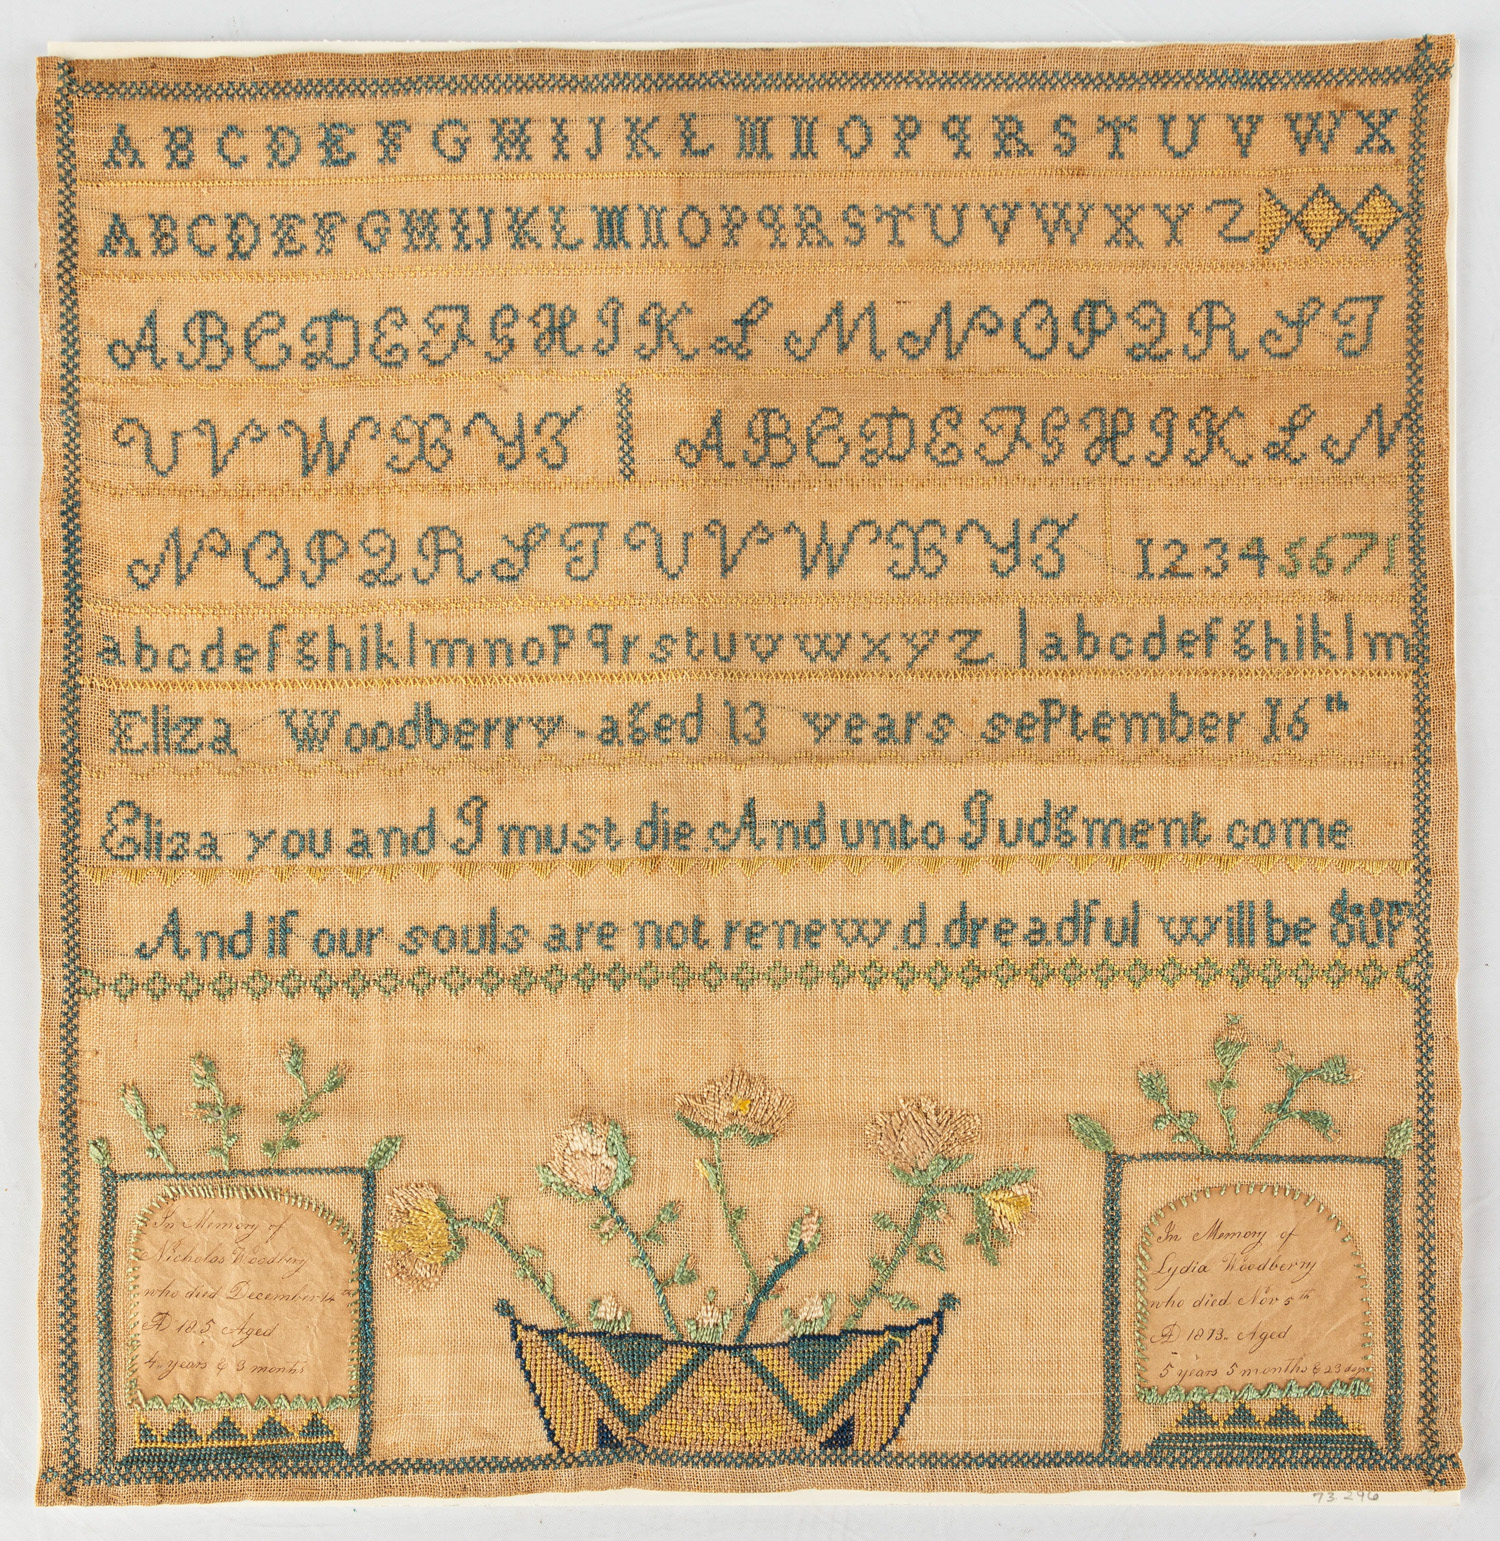 ABCDEFGHIJKLMNOPQRSTUVWX
ABCDEFGHIJKLMNOPQRSTUVWXYZ
ABCDEFGHIKLMNOPQRST
UVWXYZ ABCDEFGHIKLM
NOPQRSTUVWXYZ 1234567
abcdefghiklmnopqrstuvwxyz abcdefghiklm
Eliza Woodberry aged 13 years september 16th
Eliza you and I must die And unto Judgment come
And if our souls are not renew,d dreadful will be our doom
In Memory of
Nicholas Woodbery
who died December 14th
AD 185 Aged
4 years & 3 months
In Memory of
Lydia Woodberry
who died Nov 5th
AD 1813 Aged
5 years 5 months & 23 days
73.296